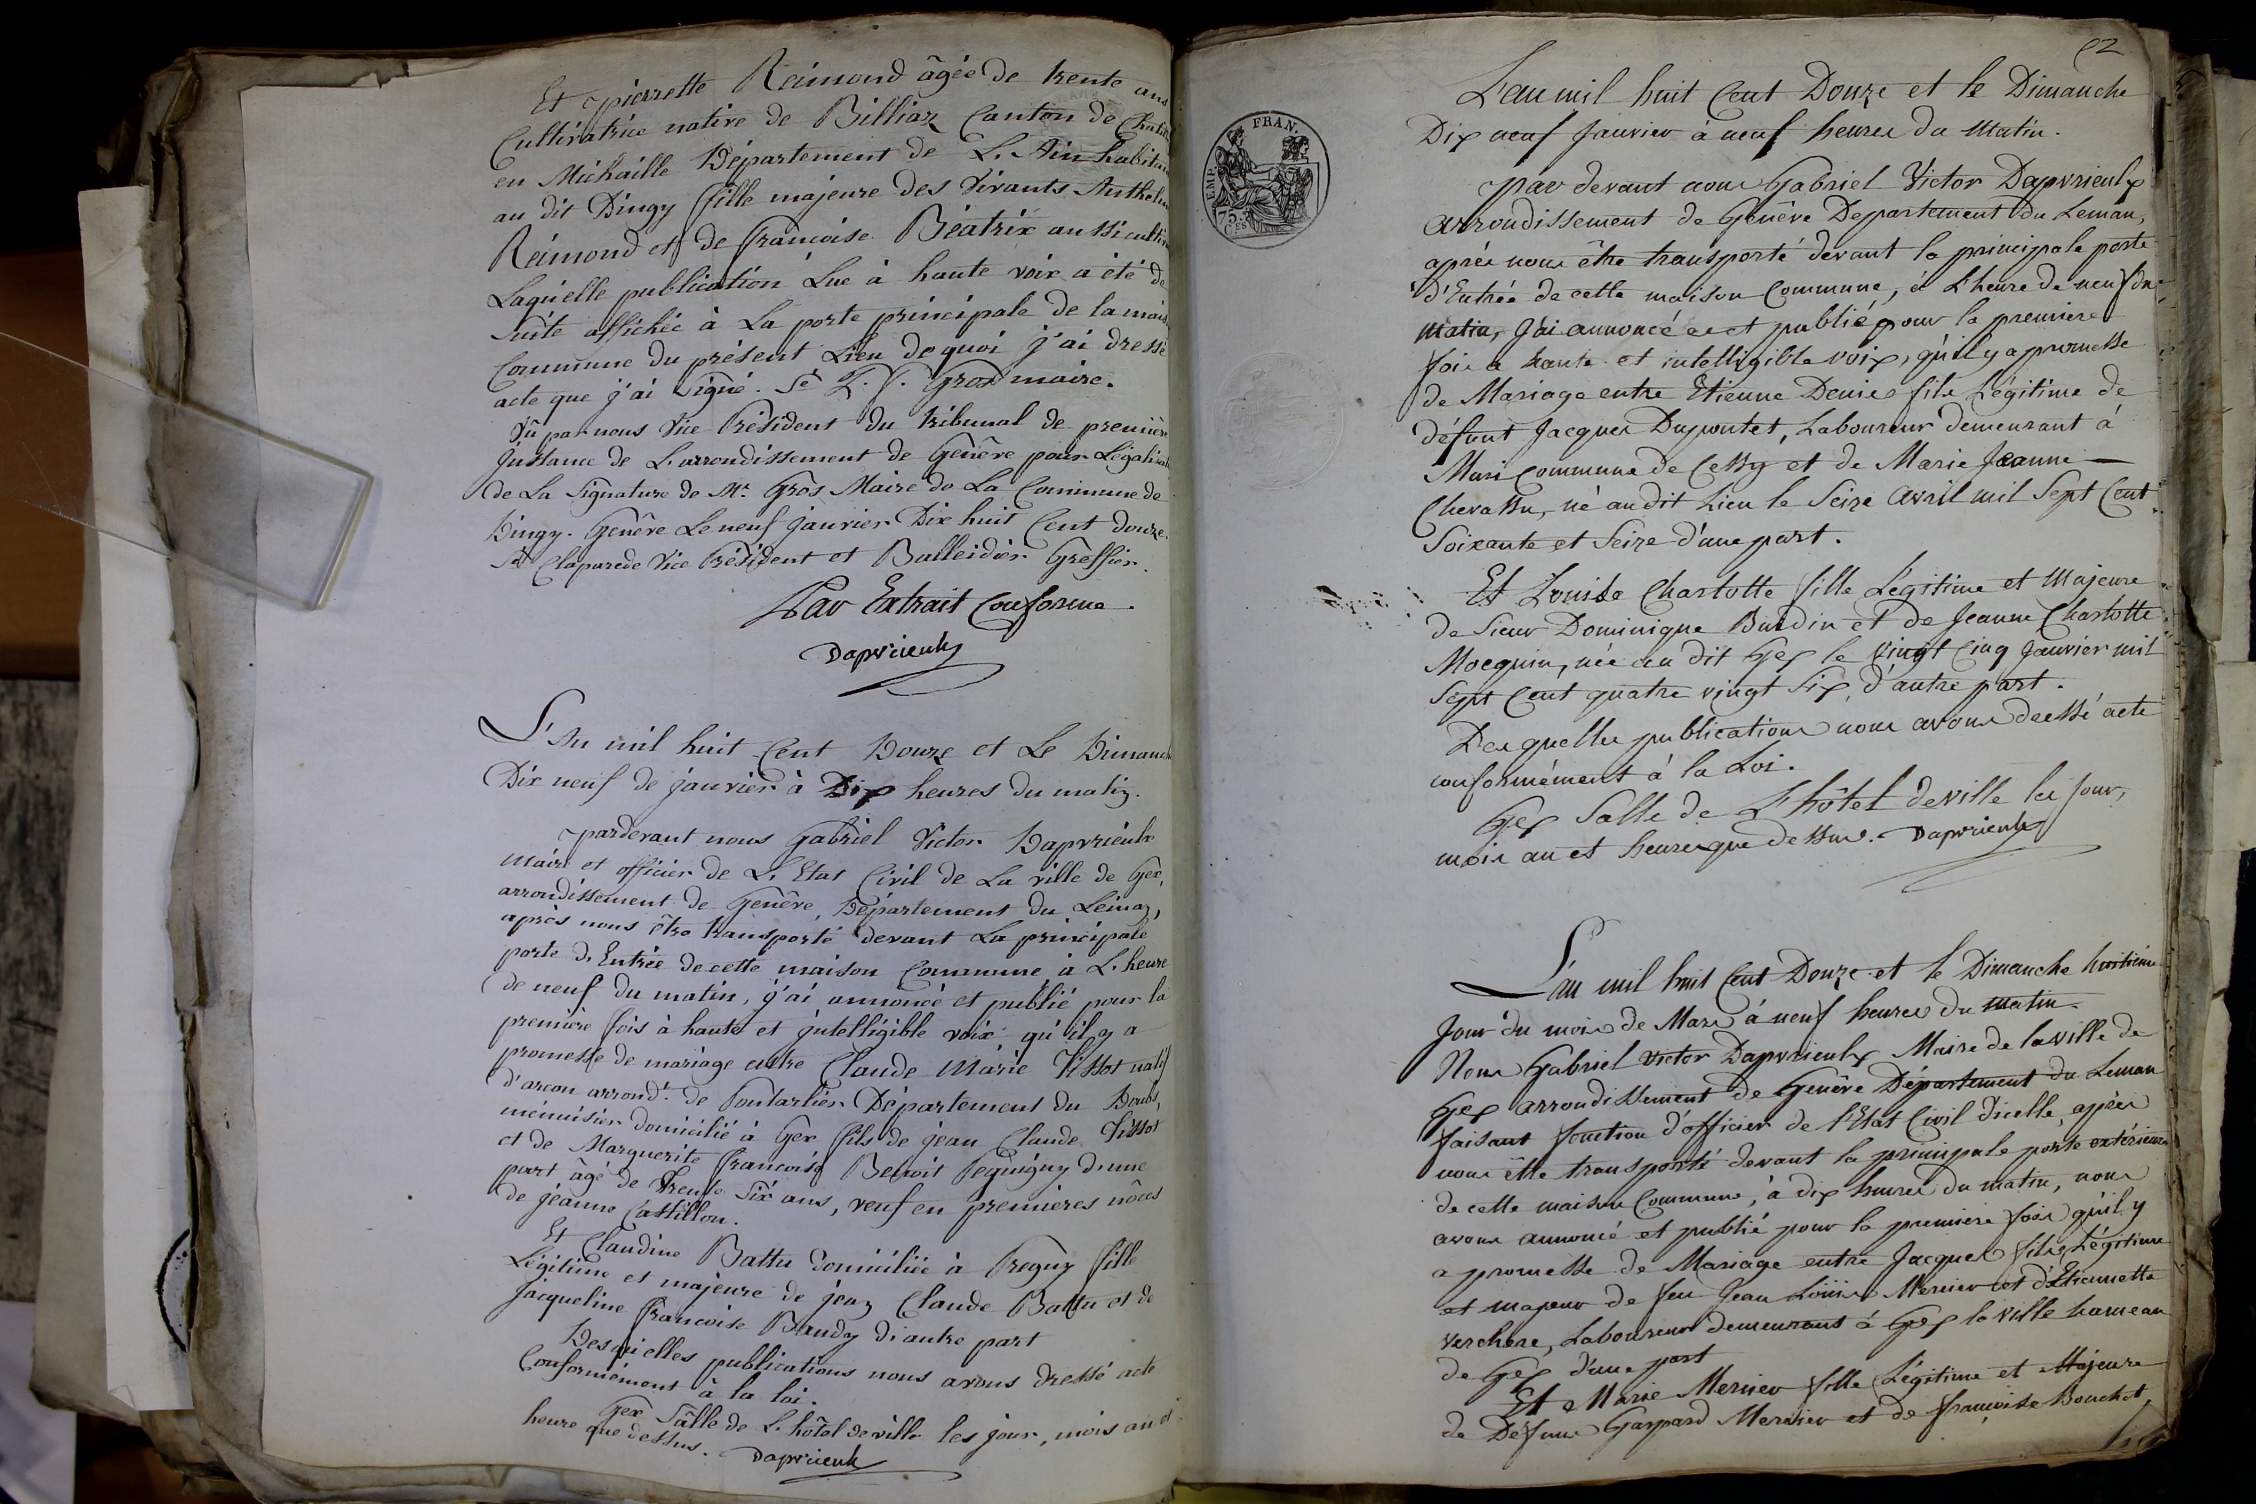 Et pierrette Reimond âgée de trente ans
Cultivatrice native de Billiaz Canton de
en Michaille Département de L'Ain
au dit Dingy fille majeure des Vivants
Reimond et de francoise Béatrix
Laquelle publication Lue à haute voix a été de
suite affichée à La porte principale de la
Commune du présent Lieu de quoi j'ai dressé
acte que j'ai signé. Gros maire.
Vû par nous Vice Président du tribunal de première
Instance de L'arrondissement de Genêve pour
de La Signature de Mr. Gros Maire de La Commune de
Dingy. Genêve Le neuf janvier Dix huit Cent douze.
Sé Claparede Vice Président et Balleidier Greffier.
Par Extrait Conforme.
Dapvrieulx
L'An mil huit Cent Douze et Le
Dix neuf de janvier à Dix heures du matin.
pardevant nous Gabriel Victor Dapvrieulx
maire et officier de L'Etat Civil de La ville de Gex,
arrondissement de Genêve, Département du Léman,
après nous être transporté devant La principale
porte d'Entrée de cette maison Commune à L'heure
de neuf du matin, j'ai annoncé et publié pour la
première fois à haute et intelligible voix, qu'il y a
promesse de mariage entre Claude Marie Tissot natif
d'arcon arrondt. de Pontarlier Département du Doubs,
ménuisier domicilié à Gex fils de jean Claude Tissot
et de Marguerite francoise Benoit Pequigny d'une
part âgé de Trente Six ans, veuf en premières nôces
de jéanne Cattillon.
Et Claudine Battu domiciliée à Pregny fille
Légitime et majeure de jean Claude Battu et de
jacqueline francoise Baudy d'autre part
Desquelles publications nous avons dressé acte
Conformément à la loi.
Gex Sâlle de L'hôtel de ville les jour, mois an et
heure que dessus. Dapvrieulx
EMP. FRAN.
75
CES
L'an mil huit Cent Douze et le Dimanche
Dix neuf Janvier à neuf heures du Matin.
par devant nous Gabriel Victor Dapvrieulx
arrondissement de Genêve Departement du Leman,
après nous être transporté devant la principale porte
d'Entrée de cette maison Commune, à L'heure de neuf du
matin, J'ai annoncé et publié pour la premiere
fois a haute et intelligible voix, qu'il y a promesse
de Mariage entre Etienne Denis fils Légitime de
défunt Jacques Dupontet, Laboureur demeurant à
Muri Commune de Cessy et de Marie Jeanne
Chevassu, né audit Lieu le Seize avril mil Sept Cent
Soixante et Seize d'une part.
Et Louise Charlotte fille Légitime et Majeure
de Sieur Dominique Burdin et de Jeanne Charlotte
Mocquin, née au dit Gex le Vingt Cinq Janvier mil
Sept Cent quatre vingt Six, d'autre part.
Desquelles publications nous avons dressé acte
conformément à la Loi.
Gex Salle de L'hôtel deville les jour,
mois an et heures que dessus. Dapvrieulx
L'an mil huit Cent Douze et le Dimanche huitième
Jour du mois de Mars à neuf heures du matin.
Nous Gabriel Victor Dapvrieulx Maire de la ville de
Gex arrondissement de Genêve Département du Leman
faisant fonction d'officier de l'Etat Civil d'icelle, après
nous être transporté devant la principale porte extérieure
de cette maison Commune, à dix heures du matin, nous
avons annoncé et publié pour la premiere fois qu'il y
a promesse de Mariage entre Jacques fils Légitime
et majeur de feu Jean Louis Mercier et d'Etiennette
Verchere, Laboureur demeurant à Gex la ville hameau
de Gex d'une part
Et Marie Mercier fille Légitime et Majeure
de Défunt Gaspard Mercier et de francoise Bouchet,